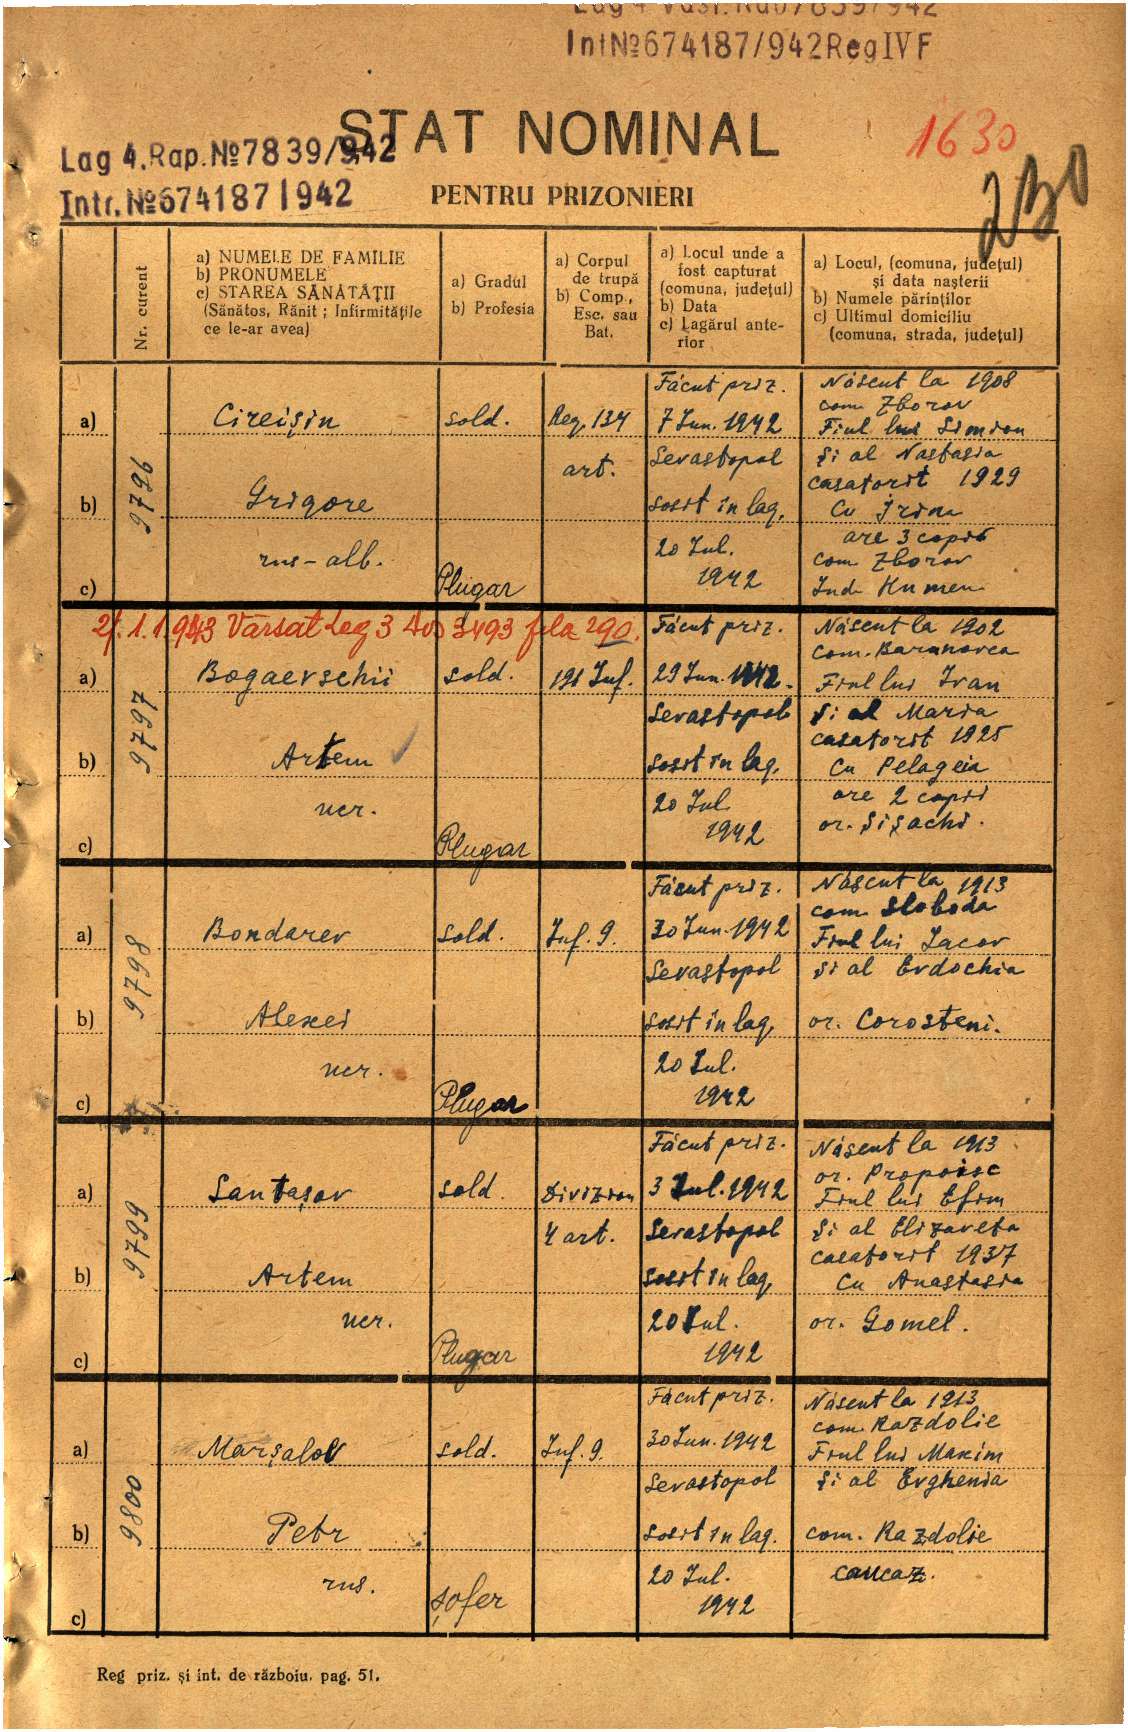 Lag 4 Vast. No 07839/942
Int№674187/942RegIVF
STAT NOMINAL
1630
Lag 4. Rap. №7839/942
Intr. №674187/942
PENTRU PRIZONIERI
230
Nr. curent
a) NUMELE DE FAMILIE
b) PRONUMELE
c) STAREA SĂNĂTĂȚII
(Sănătos, Rănit ; Infirmitățile
ce le-ar avea)
a) Gradul
b) Profesia
a) Corpul
de trupă
b) Comp.,
Esc. sau
Bat.
a) Locul unde a
fost capturat
(comuna, județul)
b) Data
c) Lagărul ante-
rior
a) Locul, (comuna, județul)
și data nașterii
b) Numele părinților
c) Ultimul domiciliu
(comuna, strada, județul)
9796
a)
b)
c)
Cireișin
Grigore
rus-alb.
sold.
Plugar
Reg. 134
art.
Făcut priz.
7 Iun. 1942
Sevastopol
sosit în lag.
20 Iul.
1942
Născut la 1908
com. Zborov
Fiul lui Simion
și al Nastasia
casatorit 1929
cu Irina
are 3 copii
com Zborov
Jud. Humen
21.1.1943 Vărsat Leg 3 Dos 3493 fila 290.
9797
a)
b)
c)
Bogaevschii
Artem
ucr.
sold.
Plugar
191 Inf.
Făcut priz.
29 Iun. 1942.
Sevastopol
sosit în lag.
20 Iul.
1942
Născut la 1902
com. Baranovca
Fiul lui Ivan
și al Maria
casatorit 1925
cu Pelageia
are 2 copii
or. Șișachi.
9798
a)
b)
c)
Bondarev
Alexei
ucr.
sold.
Plugar
Inf. 9.
Făcut priz.
30 Iun. 1942
Sevastopol
sosit în lag.
20 Iul.
1942
Născut la 1913
com. Sloboda
Fiul lui Iacov
și al Evdochia
or. Corosteni.
9799
a)
b)
c)
Santașov
Artem
ucr.
sold.
Plugar
Divizion
4 art.
Făcut priz.
3 Iul. 1942
Sevastopol
sosit în lag.
20 Iul.
1942
Născut la 1913
or. Propoisc
Fiul lui Efim
și al Elizaveta
casatorit 1937
cu Anastasia
or. Gomel.
9800
a)
b)
c)
Marșalov
Petr
rus.
sold.
șofer
Inf. 9.
Făcut priz.
30 Iun. 1942
Sevastopol
sosit in lag.
20 Iul.
1942
Născut la 1913
com. Razdolie
Fiul lui Maxim
și al Evghenia
com. Razdolie
caucaz.
Reg priz. și int. de războiu. pag. 51.